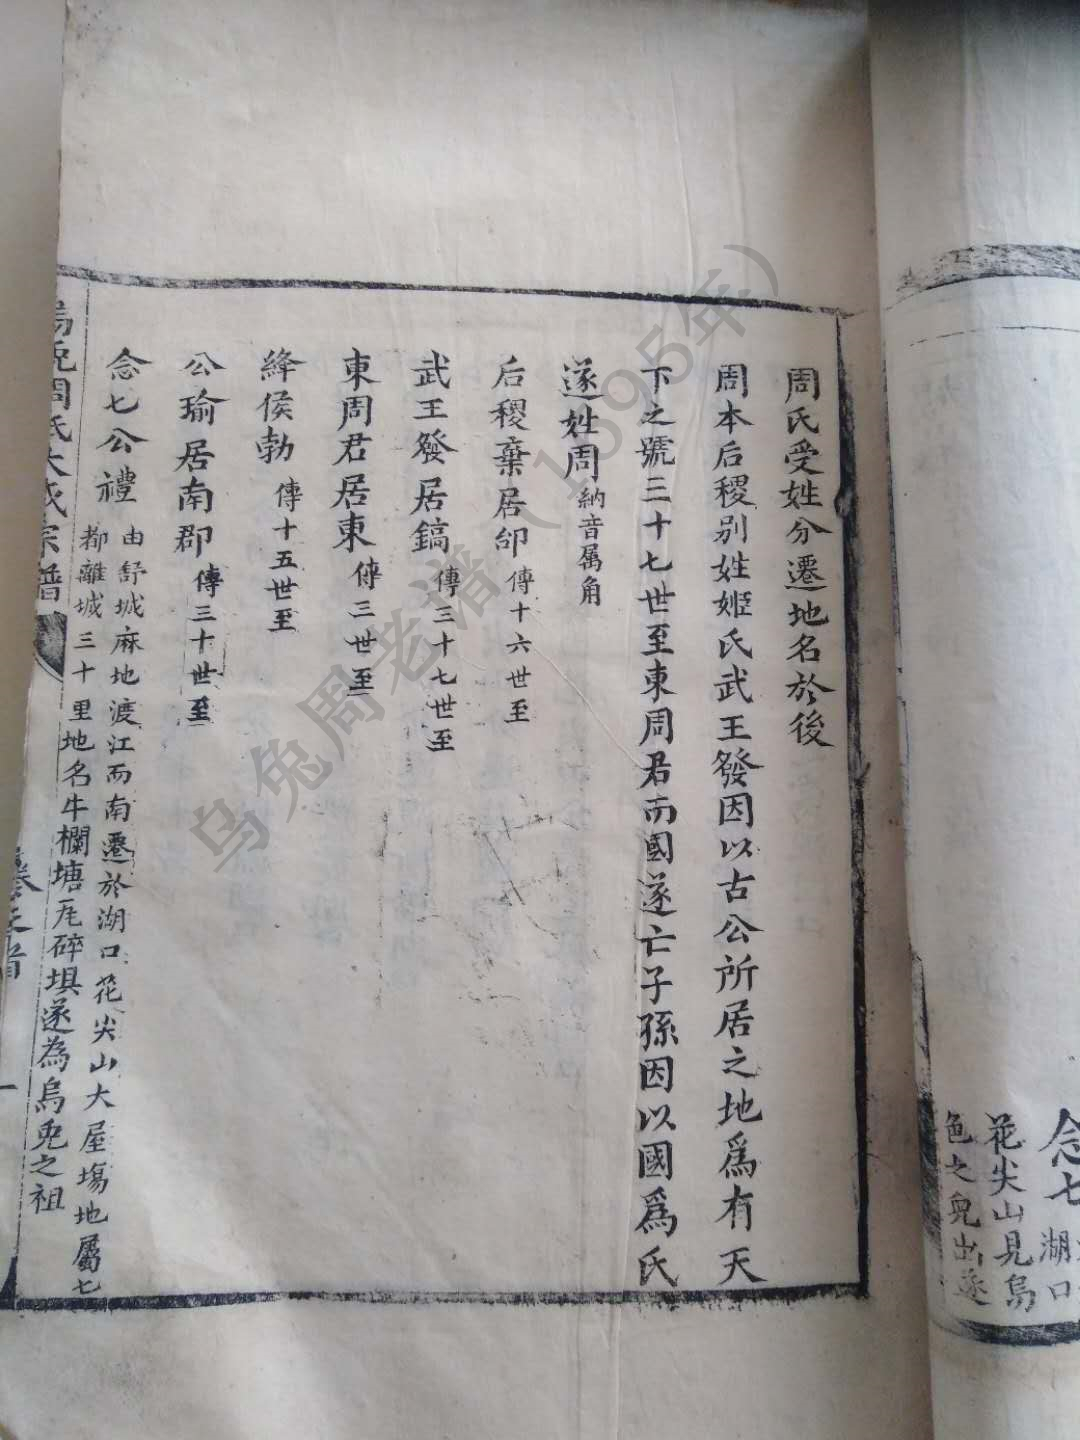 周氏受姓分遷地名於後
周本后稷别姓姬氏武王發因以古公所居之地為有天
下之號三十七世至東周君而國遂亡子孫因以國為氏
遂姓周納音属角
后稷棄居邰傳十六世至
武王發居鎬傳三十七世至
東周君居東傳三世至
絳侯勃傳十五世至
公瑜居南郡傳三十世至
念七公禮
由舒城麻地渡江而南遷於湖口花尖山大屋塲地屬七
都離城三十里地名牛欄塘瓦碎垻遂為烏兎之祖
烏兎周氏大成宗譜
卷之首
一
念七
湖口
花尖山見烏
色之兎出遂
乌兔周老谱（1895年）